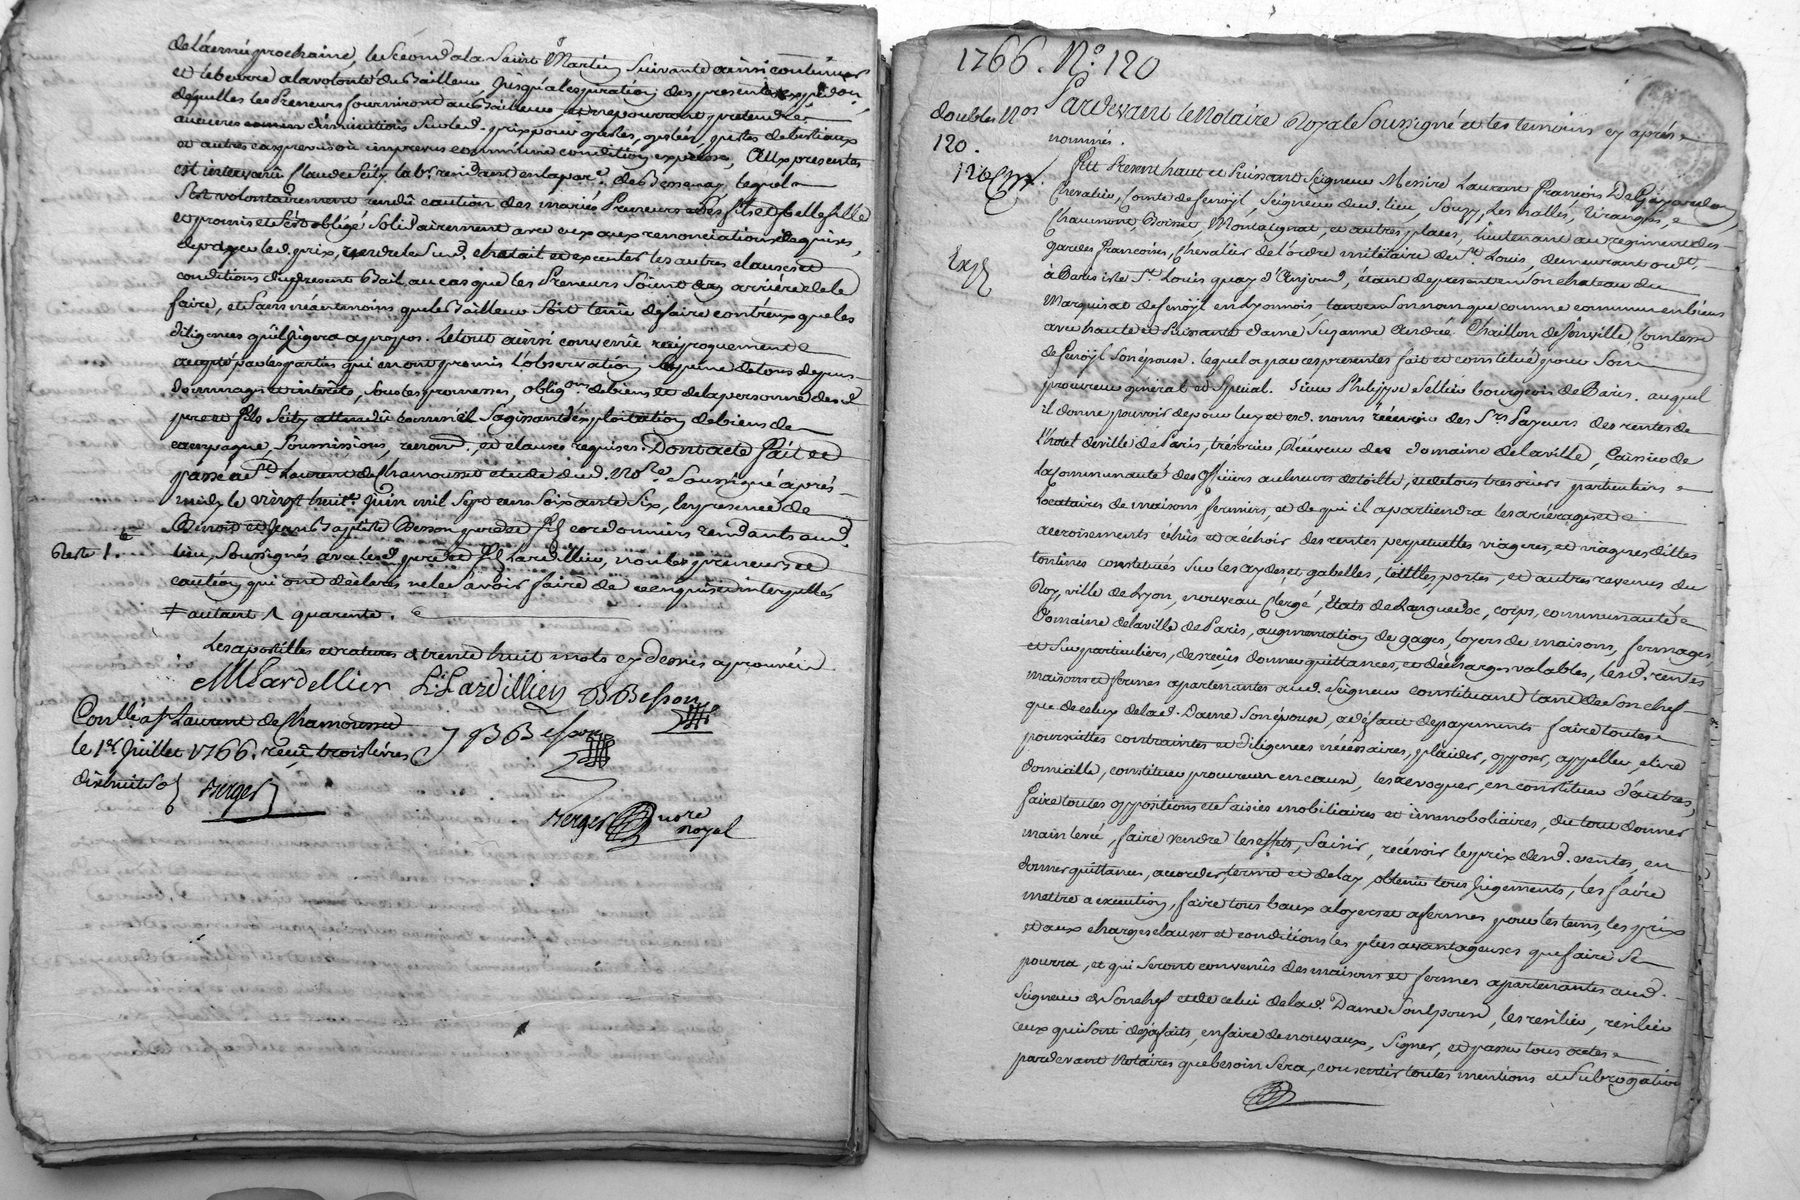 de l'année prochaine, le second a la Saint Martin suivante ainsi continuer
et le beurre a la volonté du Bailleur, jusqu'a l'expiration des presentes
desquelles les Preneurs fourniront au Bailleur et ne pourront pretendre
aucunes diminutions sur led. prix pour grelle, gelée, pertes de bestiaux
ou autres cas prevus ou imprevus comme une condition expresse, Aux presentes
est intervenu Claude Seity lab.r residant en la par.e de Bessenay lequel
s'est volontairement rendu caution des mariés Preneurs ses fils et belle fille
et promis et s'est obligé solidairement avec eux aux renonciations requises,
de payer led. prix, rendre le sud. chetail et executer les autres clauses et
conditions du present Bail au cas que les Preneurs soient en arriére de le
faire, et sans néantmoins que le Bailleur soit tenu de faire contr'eux que les
diligences qu'il jugera a propos. Le tout ainsi convenu reciproquement
accepté par les parties qui en ont promis l'observation a peine de tous depens
dommages et interêts, sous les promesses, oblig.on de biens et de la personne desd.
pere et fils Seity attendu comme il s'agit d'exploitation de biens de
campagne, soumissions, renon.d, et clauses requises. Dont acte fait et
passé a S.t Laurent de Chamousset etude dud. No.re soussigné aprés
midy le vingt huit.e juin mil sept cens soixante six, en presence de
Benoist et Jean Baptiste Besson pere et fils cordonniers residants aud.
Reste 1.
lieu, soussignés avec lesd. pere et fils Lardellier, non les preneurs et
caution qui ont declaré ne le savoir faire de ce enquis et interpellés
# autant ^ quarente.
Les apostilles et ratures de trente huit mots cy dessus approuvées
MLardellier L. Lardillier BBesson
Conllé a S.t Laurent de Chamousset
J B Besson
le 1.er Juillet 1766. reçu trois livres
dixhuit s
Berger
Berger no.re
royal
1766. N.o 120
doubles N.os
120.
120 bis.
Exp
Pardevant le Notaire Royal Soussigné et les temoins cy aprés
nommés.
Fut Present haut et Puissant Seigneur Messire Laurent François De Gayardon,
Chevalier, Comte de Fenoÿl, Seigneur dud. lieu, Souzy, Les halles, Virangés,
Chaumont, Croiset, Montalegnat, et autres places, lieutenant au regiment des
gardes françoises, Chevalier de l'ordre militaire de S.t Louis, demeurant ord.t
à Paris isle S.t Louis quay d'Anjou, étant de present en son chateau du
Marquisat de Fenoÿl en Lyonnois tant en son nom que comme commun en biens
avec haute et Puissante dame Suzanne Andrée Chaillon de Jonville Comtesse
de Fenoÿl son épouse. lequel a par ces presentes fait et constitué pour son
procureur général et special. Sieur Philippe Sellier bourgeois de Paris. auquel
il donne pouvoir de pour luy et esd. noms recevoir des S.rs Payeurs des rentes de
l'hotel de ville de Paris, trésorier, Réceveur des domaine de la ville, Caissier de
la Communauté des officiers auneurs de toille, et de tous tresoriers particuliers
locataires de maisons fermiers, et de qui il apartiendra les arrérages et
accroissements échus et a échoir des rentes perpetuelles viageres, et viageres dittes
tontines constituées sur les aydes, et gabelles, tailles, postes, et autres revenus du
Roy, ville de Lyon, nouveau Clergé, Etats de Languedoc, corps, communauté
Domaine de la ville de Paris, augmentation de gages, loyers de maisons, fermages,
et sur particuliers, de reçus donner quittances, et décharges valables, lesd. rentes
maisons et fermes apartenantes aud. Seigneur constituant tant de son chef
que de celuy de lad. Dame son épouse, a défaut de payements faire toutes
poursuittes contraintes et diligences nécéssaires, plaider, opposer, appeller, elire
domicille, constituer procureur en cause, les revoquer, en constituer d'autres,
faire toutes oppositions et saisies mobiliaires et immobiliaires, du tout donner
main levée, faire vendre les effets, saisir, recévoir le prix desd. ventes, en
donner quittances, accorder, terme et delay, obtenir tous jugements, les faire
mettre a execution, faire tous baux a loyers et a fermes pour les tems, les prix
et aux charges clauses et conditions les plus avantageuses que faire se
pourra, et qui seront convenûs des maisons et fermes apartenantes aud.
Seigneur de son chef et de celui de lad. Dame son Epouse, les resilier, resilier
ceux qui sont deja faits, en faire de nouveaux, signer, et passer tous actes
pardevant Notaires que besoin sera, consentir toutes mentions et subrogation